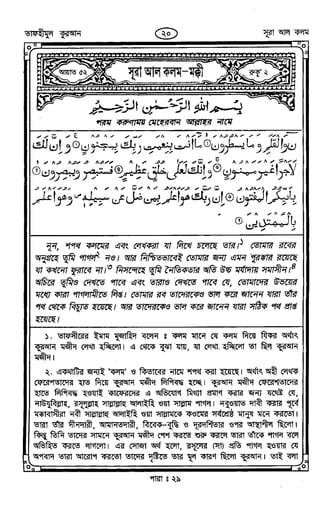 তাফহীমুল কুরআন
২০
সূরা আল কলম
আয়াত ৫২
সূরা আল কলম-মক্কী
রুকূ' ২
بِسْمِ اللهِ الرَّحْمٰنِ الرَّحِيْمِ
পরম করুণাময় মেহেরবান আল্লাহর নামে
نۤ وَالْقَلَمِ وَمَا يَسْطُرُوْنَ ۙ مَاۤ اَنْتَ بِنِعْمَةِ رَبِّكَ بِمَجْنُوْنٍ ۚ وَاِنَّ لَكَ
لَاَجْرًا غَيْرَ مَمْنُوْنٍ ۚ وَاِنَّكَ لَعَلٰى خُلُقٍ عَظِيْمٍ ۚ فَسَتُبْصِرُ وَيُبْصِرُوْنَ ۙ
بِاَىيِّكُمُ الْمَفْتُوْنُ ۚ اِنَّ رَبَّكَ هُوَ اَعْلَمُ بِمَنْ ضَلَّ عَنْ سَبِيْلِهٖ ۪ وَهُوَ اَعْلَمُ
بِالْمُهْتَدِيْنَ ۚ
নূন, শপথ কলমের এবং লেখকরা যা লিখে চলেছে তার।১ তোমার রবের
অনুগ্রহে তুমি পাগল২ নও। আর নিশ্চিতভাবেই তোমার জন্য এমন পুরস্কার রয়েছে
যা কখনো ফুরাবে না।৩ নিসন্দেহে তুমি নৈতিকতার অতি উচ্চ মর্যাদায় সমাসীন।৪
অচিরে তুমিও দেখতে পাবে এবং তারাও দেখতে পাবে যে, তোমাদের উভয়ের
মধ্যে কারা পাগলামীতে লিপ্ত। তোমার রব তাদেরকেও ভাল করে জানেন যারা তাঁর
পথ থেকে বিচ্যুত হয়েছে। আর তাদেরকেও ভাল করে জানেন যারা সঠিক পথ প্রাপ্ত
হয়েছে।
১. তাফসীরের ইমাম মুজাহিদ বলেন ঃ কলম মানে যে কলম দিয়ে যিকর অর্থাৎ
কুরআন মজীদ লেখা হচ্ছিলো। এ থেকে বুঝা যায়, যা লেখা হচ্ছিলো তা ছিল কুরআন
মজীদ।
২. একথাটির জন্যই 'কলম' ও কিতাবের নামে শপথ করা হয়েছে। অর্থাৎ অহী লেখক
ফেরেশতাদের হাত দিয়ে কুরআন মজীদ লিপিবদ্ধ হচ্ছে। কুরআন মজীদ ফেরেশতাদের
হাতে লিপিবদ্ধ হওয়াই কাফেরদের এ অভিযোগ মিথ্যা প্রমাণ করার জন্য যথেষ্ট যে,
নাউযুবিল্লাহ, রসূলুল্লাহ সাল্লাল্লাহু আলাইহি ওয়া সাল্লাম পাগল। নবুওয়াত দাবী করার পূর্বে
মক্কাবাসীরা নবী সাল্লাল্লাহু আলাইহি ওয়া সাল্লামকে কওমের সর্বশ্রেষ্ঠ মানুষ মনে করতো।
তারা তাঁর দীনদারী, আমানতদারী, বিবেক-বুদ্ধি ও দূরদর্শিতার ওপর আস্থাশীল ছিলো।
কিন্তু তিনি তাদের সামনে কুরআন মজীদ পেশ করতে শুরু করলে তারা তাঁকে পাগল বলে
অভিহিত করতে লাগলো। এর সোজা অর্থ হলো, রসূলের (সা) প্রতি পাগল হওয়ার যে
অপবাদ তারা আরোপ করতো তাদের দৃষ্টিতে তার মূল কারণ ছিলো কুরআন। তাই বলা
পারা ঃ ২৯